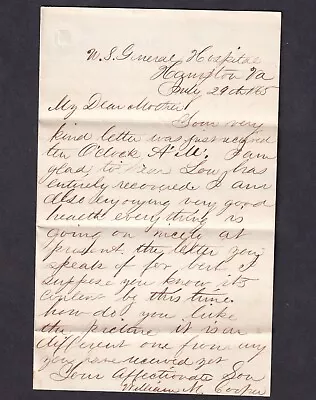 U.S. General Hospital
Hampton Va
July 29th /65
My Dear Mother
Your very
kind letter was just received
ten O'Clock A.M. I am
glad to hear Lou has
entirely recovered I am
also enjoying very good
health everything is
going on nicely at
present. the letter you
speak of for bert I
suppose you know its
content by this time.
how do you like
the picture it is a
different one from any
you have received yet
Your Affectionate Son
William M. Cooper